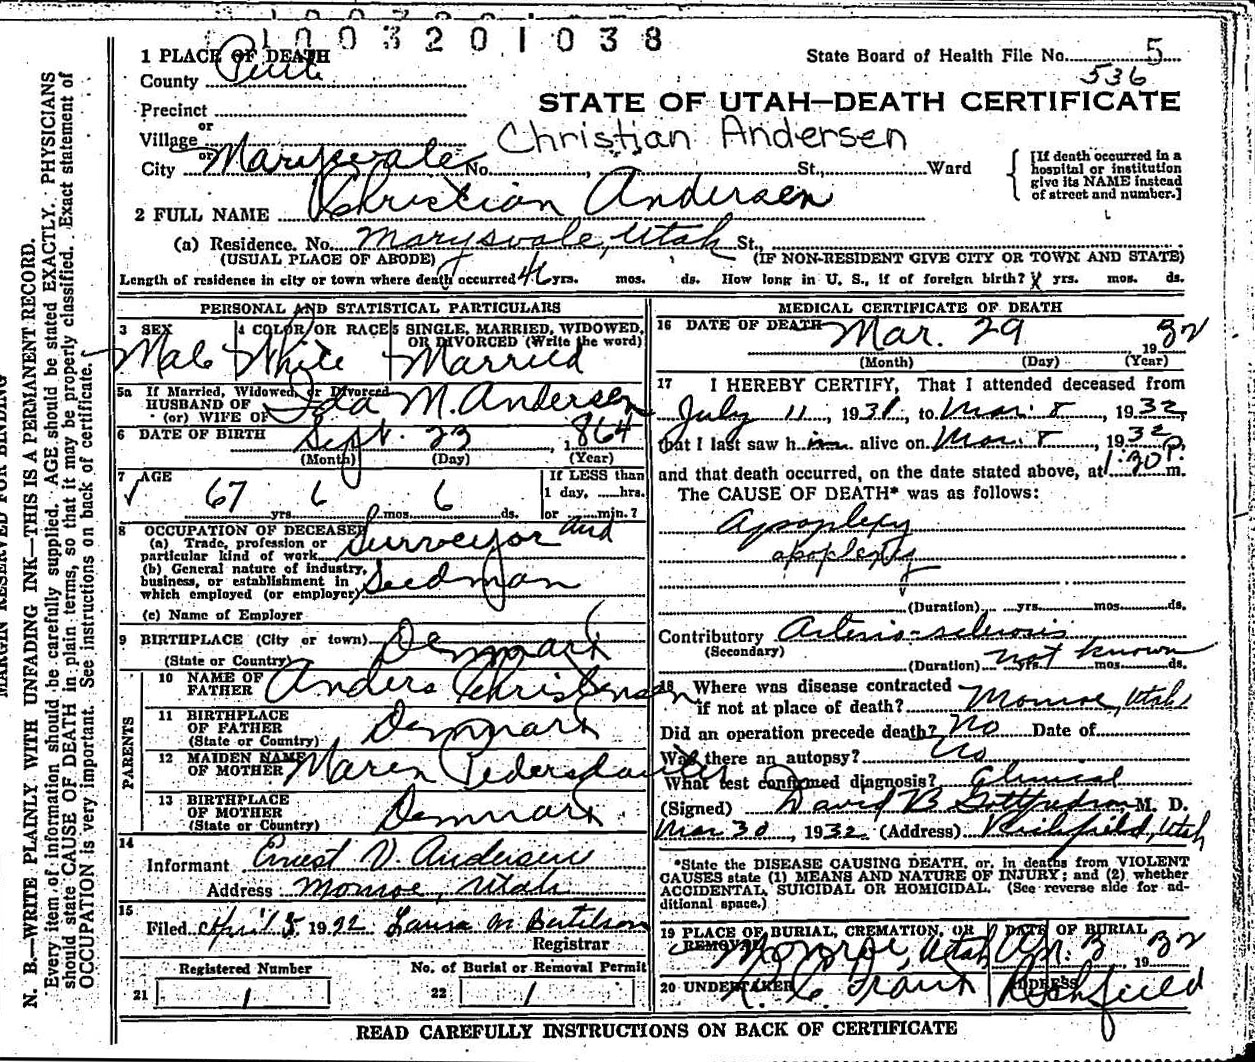 1003201038
1 PLACE OF DEATH
State Board of Health File No. 5
County Piute
536
Precinct
STATE OF UTAH—DEATH CERTIFICATE
or
Village
Christian Andersen
or
City Marysvale No. , St., Ward
[If death occurred in a hospital or institution give its NAME instead of street and number.]
2 FULL NAME Christian Andersen
(a) Residence. No. Marysvale, Utah St.,
(USUAL PLACE OF ABODE) (IF NON-RESIDENT GIVE CITY OR TOWN AND STATE)
Length of residence in city or town where death occurred 46 yrs. mos. ds. How long in U. S., if of foreign birth? yrs. mos. ds.
PERSONAL AND STATISTICAL PARTICULARS
3 SEX 4 COLOR OR RACE 5 SINGLE, MARRIED, WIDOWED, OR DIVORCED (Write the word)
Male White Married
5a If Married, Widowed, or Divorced
HUSBAND OF
(or) WIFE OF Ida M. Andersen
6 DATE OF BIRTH Sept. 23, 1864
(Month) (Day) (Year)
7 AGE
If LESS than
1 day, ......hrs.
67 yrs. 6 mos. 6 ds. or ......min.?
8 OCCUPATION OF DECEASED
(a) Trade, profession or
particular kind of work Surveyor and
(b) General nature of industry,
business, or establishment in
which employed (or employer) Seedman
(c) Name of Employer
9 BIRTHPLACE (City or town)
(State or Country) Denmark
PARENTS
10 NAME OF
FATHER Anders Christensen
11 BIRTHPLACE
OF FATHER
(State or Country) Denmark
12 MAIDEN NAME
OF MOTHER Maren
13 BIRTHPLACE
OF MOTHER
(State or Country) Denmark
14
Informant Ernest V. Andersen
Address Monroe, Utah
15
Filed April 5, 1932 Laura M. Bertelson
Registrar
Registered Number No. of Burial or Removal Permit
21 1 22 1
MEDICAL CERTIFICATE OF DEATH
16 DATE OF DEATH Mar. 29 1932
(Month) (Day) (Year)
17 I HEREBY CERTIFY, That I attended deceased from
July 11, 1931, to Mar. 8, 1932,
that I last saw him alive on Mar. 8, 1932
and that death occurred, on the date stated above, at 1:30 P. m.
The CAUSE OF DEATH* was as follows:
Apoplexy
apoplexy
(Duration) yrs. mos. ds.
Contributory Arterio-sclerosis
(Secondary)
(Duration) not known yrs. mos. ds.
18 Where was disease contracted
if not at place of death? Monroe, Utah
Did an operation precede death? No Date of
Was there an autopsy? No
What test confirmed diagnosis? Clinical
(Signed) David B Gottfredson M. D.
Mar 30, 1932 (Address) Richfield, Utah
*State the DISEASE CAUSING DEATH, or, in deaths from VIOLENT
CAUSES state (1) MEANS AND NATURE OF INJURY; and (2) whether
ACCIDENTAL, SUICIDAL OR HOMICIDAL. (See reverse side for ad-
ditional space.)
19 PLACE OF BURIAL, CREMATION, OR REMOVAL DATE OF BURIAL
Monroe, Utah 3, 1932
20 UNDERTAKER ADDRESS
Richfield
READ CAREFULLY INSTRUCTIONS ON BACK OF CERTIFICATE
MARGIN RESERVED FOR BINDING
N. B.—WRITE PLAINLY WITH UNFADING INK—THIS IS A PERMANENT RECORD.
Every item of information should be carefully supplied. AGE should be stated EXACTLY. PHYSICIANS
should state CAUSE OF DEATH in plain terms, so that it may be properly classified. Exact statement of
OCCUPATION is very important. See instructions on back of certificate.